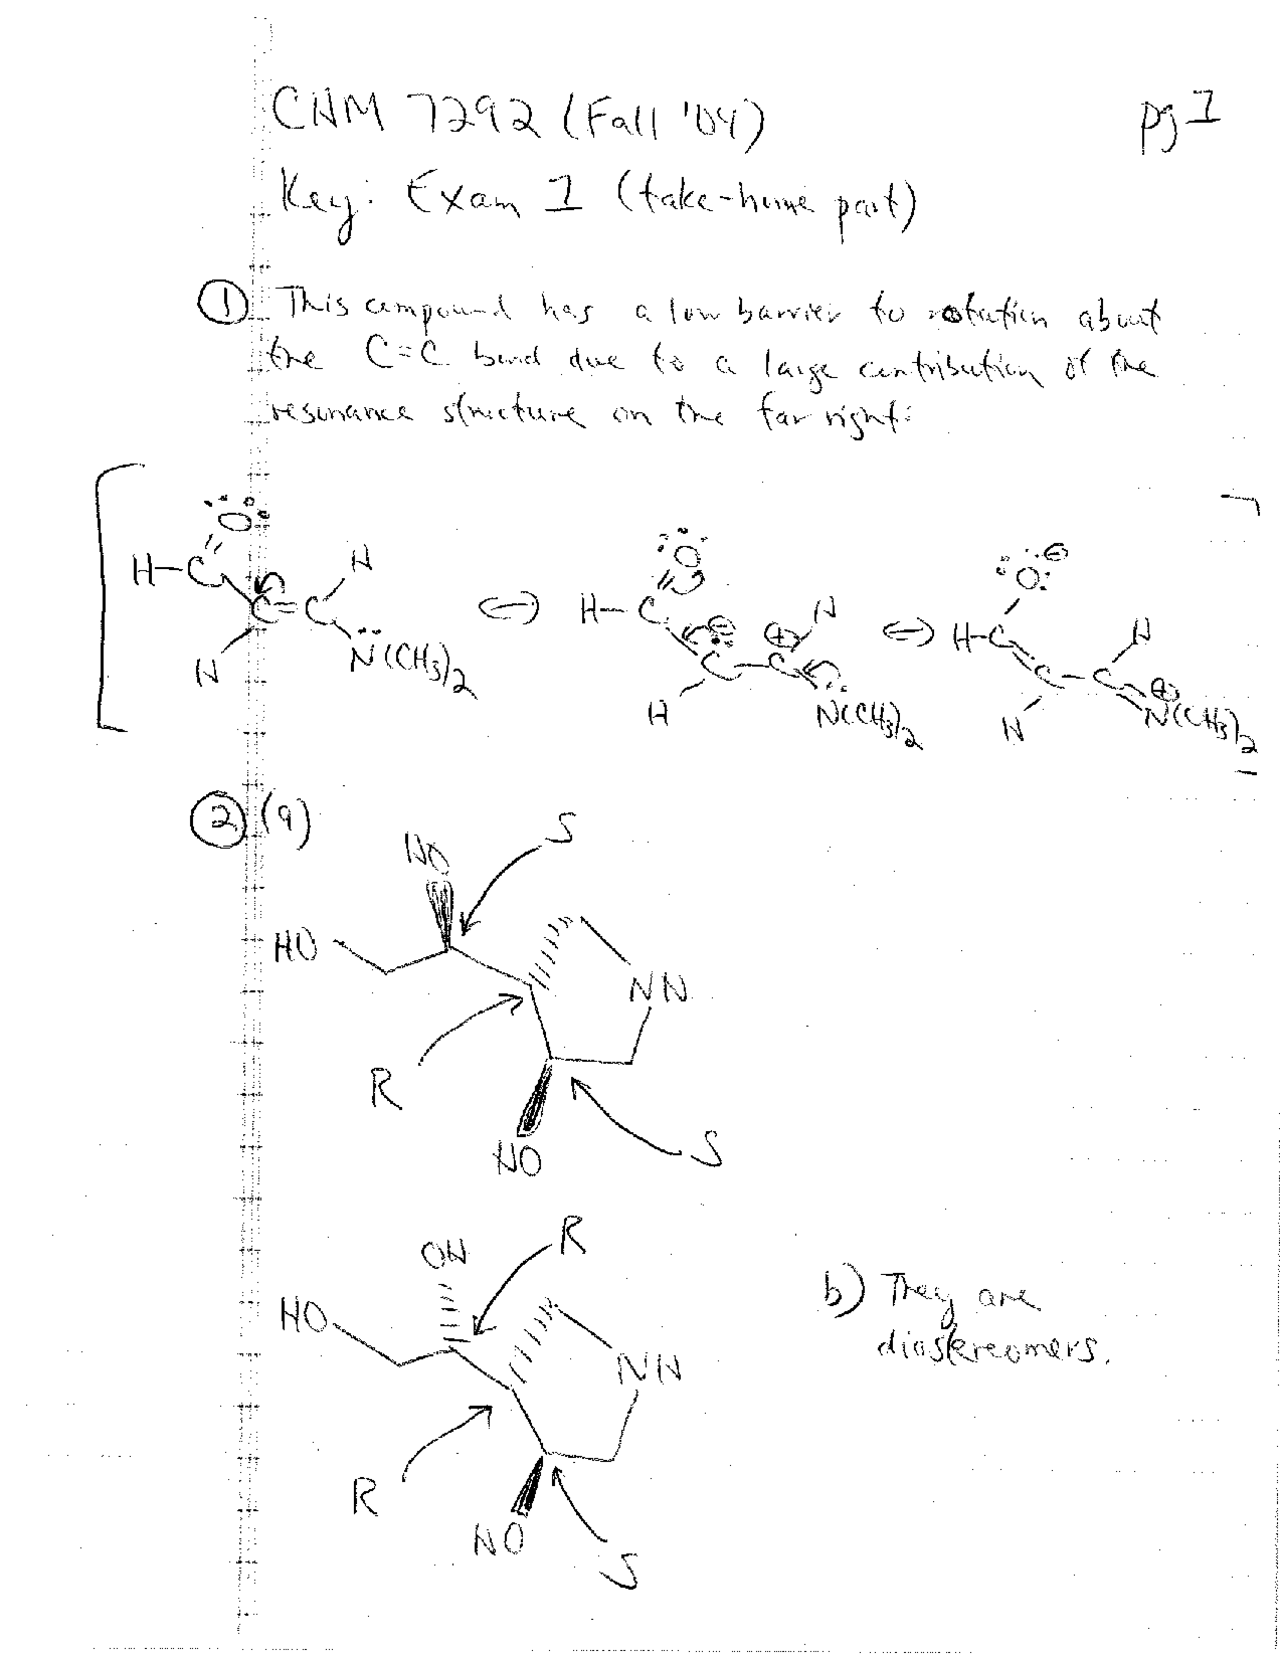 CHM 7292 (Fall '04)
pg 1
Key: Exam 1 (take-home part)
① This compound has a low barrier to rotation about
the C=C bond due to a large contribution of the
resonance structure on the far right:
O
H-C
C=C
H
H
N(CH3)2
O
H-C
⊖
⊕
H
C-C
H
N(CH3)2
O ⊖
H-C
H
C-C
⊕
H
N(CH3)2
② (a)
S
HO
HO
NH
R
HO
S
R
OH
HO
NH
R
HO
S
b) They are
diastereomers.